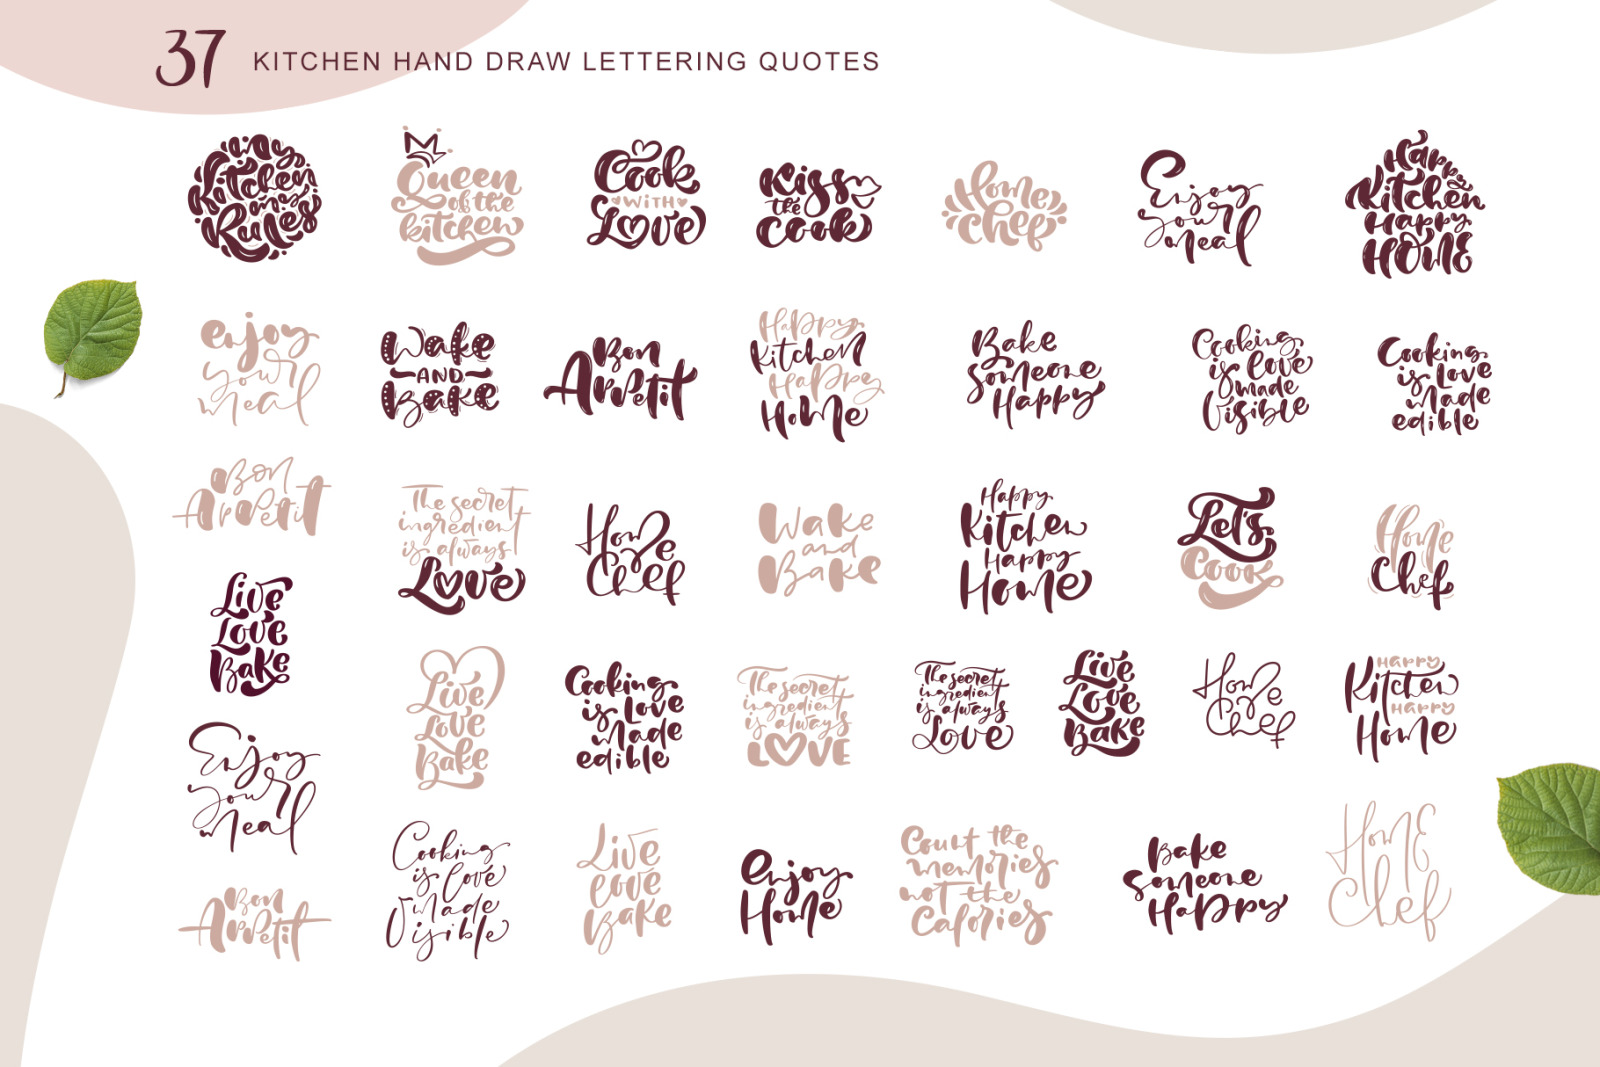 37 KITCHEN HAND DRAW LETTERING QUOTES
my
Kitchen
my
Rules
Queen
of the
kitchen
Cook
WITH
Love
Kiss
the
Cook
Home
Chef
Enjoy
your
meal
Happy
Kitchen
Happy
HOME
enjoy
your
meal
Wake
AND
Bake
Bon
Appetit
Happy
Kitchen
Happy
Home
Bake
someone
Happy
Cooking
is love
made
Visible
Cooking
is Love
Made
edible
Bon
Appetit
The secret
ingredient
is always
Love
Home
Chef
Wake
and
Bake
Happy
Kitchen
Happy
Home
Let's
Cook
Home
Chef
Live
Love
Bake
Live
Love
Bake
Cooking
is Love
Made
edible
The secret
ingredient
is always
LOVE
The secret
ingredient
is always
Love
Live
Love
Bake
Home
Chef
Happy
Kitchen
Happy
Home
Enjoy
your
meal
Cooking
is love
made
Visible
Live
love
Bake
enjoy
Home
Count the
memories
not the
Calories
Bake
someone
Happy
Home
Chef
Bon
Appetit